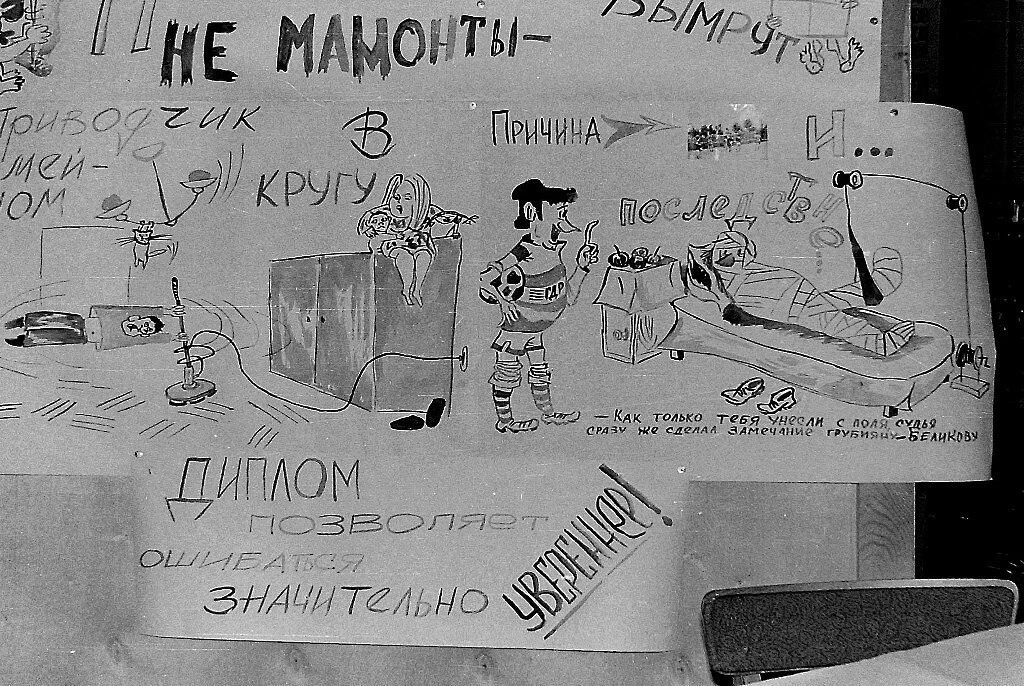 НЕ МАМОНТЫ-
ВЫМРУТ
ПРИВОДЧИК
В
КРУГУ
ПРИЧИНА
И...
ПОСЛЕДСТВИ
ГДР
— КАК ТОЛЬКО ТЕБЯ УНЕСЛИ С ПОЛЯ, СУДЬЯ
СРАЗУ ЖЕ СДЕЛАЛ ЗАМЕЧАНИЕ ГРУБИЯНУ-БЕЛИКОВУ
ДИПЛОМ
ПОЗВОЛЯЕТ
ОШИБАТЬСЯ
ЗНАЧИТЕЛЬНО
УВЕРЕННЕЕ!